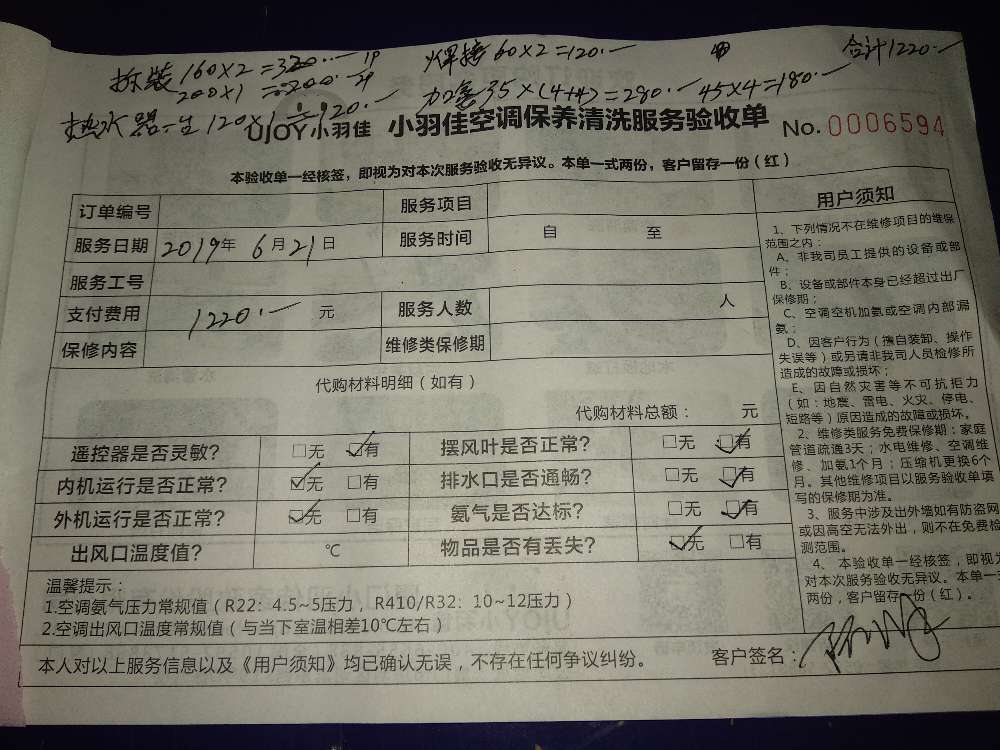 拆装160×2=320.- 1P 焊接60×2=120.- 合计1220.-
200×1=200.- 2P 加氨35×(4+4)=280.- 45×4=180.-
热水器一生120×1=120.-
UJOY小羽佳 小羽佳空调保养清洗服务验收单 No. 0006594
本验收单一经核签，即视为对本次服务验收无异议。本单一式两份，客户留存一份（红）
订单编号 服务项目
服务日期 2019年 6月21日 服务时间 自 至
服务工号
支付费用 1220.- 元 服务人数 人
保修内容 维修类保修期
代购材料明细（如有）
代购材料总额： 元
遥控器是否灵敏？ □无 ☑有 摆风叶是否正常？ □无 ☑有
内机运行是否正常？ ☑无 □有 排水口是否通畅？ □无 ☑有
外机运行是否正常？ ☑无 □有 氨气是否达标？ □无 ☑有
出风口温度值？ ℃ 物品是否有丢失？ ☑无 □有
温馨提示：
1.空调氨气压力常规值（R22：4.5~5压力，R410/R32：10~12压力）
2.空调出风口温度常规值（与当下室温相差10℃左右）
本人对以上服务信息以及《用户须知》均已确认无误，不存在任何争议纠纷。 客户签名：
用户须知
1、下列情况不在维修项目的维保
范围之内：
A、非我司员工提供的设备或部
件；
B、设备或部件本身已经超过出厂
保修期；
C、空调空机加氨或空调内部漏
氨；
D、因客户行为（擅自装卸、操作
失误等）或另请非我司人员检修所
造成的故障或损坏；
E、因自然灾害等不可抗拒力
（如：地震、雷电、火灾、停电、
短路等）原因造成的故障或损坏。
2、维修类服务免费保修期：家庭
管道疏通3天；水电维修、空调维
修、加氨1个月；压缩机更换6个
月。其他维修项目以服务验收单填
写的保修期为准。
3、服务中涉及出外墙如有防盗网
或因高空无法外出，则不在免费检
测范围。
4、本验收单一经核签，即视为
对本次服务验收无异议。本单一式
两份，客户留存一份（红）。